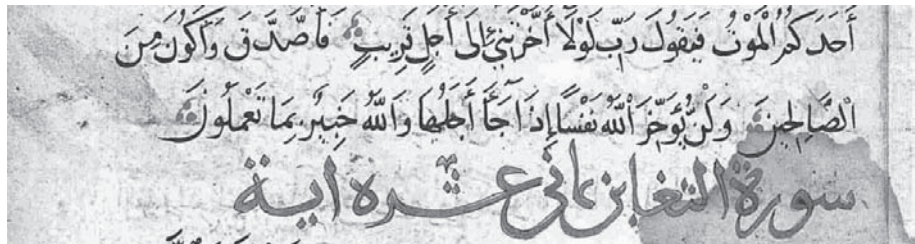 أَحَدَكُمُ الْمَوْتُ فَيَقُولَ رَبِّ لَوْلَا أَخَّرْتَنِي إِلَى أَجَلٍ قَرِيبٍ فَأَصَّدَّقَ وَأَكُونَ مِنَ
الصَّالِحِينَ وَلَنْ يُؤَخِّرَ اللَّهُ نَفْسًا إِذَا جَاءَ أَجَلُهَا وَاللَّهُ خَبِيرٌ بِمَا تَعْمَلُونَ
سورة التغابن ثماني عشره اية